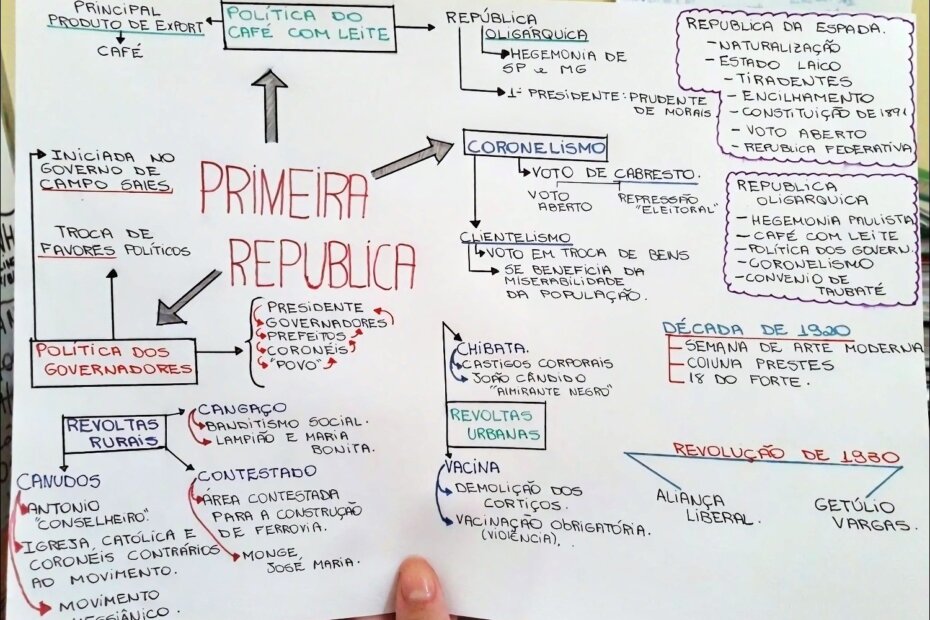 PRINCIPAL
PRODUTO DE EXPORT
CAFÉ
POLÍTICA DO
CAFÉ COM LEITE
REPÚBLICA
OLIGÁRQUICA
HEGEMONIA DE
SP e MG
1º PRESIDENTE: PRUDENTE
DE MORAIS
REPUBLICA DA ESPADA.
- NATURALIZAÇÃO
- ESTADO LAICO
- TIRADENTES
- ENCILHAMENTO
- CONSTITUIÇÃO DE 1891
- VOTO ABERTO
- REPUBLICA FEDERATIVA
INICIADA NO
GOVERNO DE
CAMPO SALES
PRIMEIRA
REPUBLICA
CORONELISMO
VOTO DE CABRESTO.
VOTO
ABERTO
REPRESSÃO
"ELEITORAL"
CLIENTELISMO
VOTO EM TROCA DE BENS
SE BENEFICIA DA
MISERABILIDADE
DA POPULAÇÃO.
REPUBLICA
OLIGARQUICA
- HEGEMONIA PAULISTA
- CAFÉ COM LEITE
- POLÍTICA DOS GOVERN.
- CORONELISMO
- CONVENIO DE
TAUBATÉ
TROCA DE
FAVORES POLÍTICOS
POLÍTICA DOS
GOVERNADORES
PRESIDENTE
GOVERNADORES
PREFEITOS
CORONÉIS
"POVO"
CHIBATA.
CASTIGOS CORPORAIS
JOÃO CÂNDIDO
"ALMIRANTE NEGRO"
REVOLTAS
URBANAS
VACINA
DEMOLIÇÃO DOS
CORTIÇOS.
VACINAÇÃO OBRIGATÓRIA.
(VIOLÊNCIA).
DÉCADA DE 1920
SEMANA DE ARTE MODERNA
COLUNA PRESTES
18 DO FORTE.
REVOLTAS
RURAIS
CANGAÇO
BANDITISMO SOCIAL.
LAMPIÃO E MARIA
BONITA.
CANUDOS
ANTONIO
"CONSELHEIRO".
IGREJA CATÓLICA E
CORONÉIS CONTRÁRIOS
AO MOVIMENTO.
MOVIMENTO
MESSIÂNICO.
CONTESTADO
ÁREA CONTESTADA
PARA A CONSTRUÇÃO
DE FERROVIA.
MONGE
JOSÉ MARIA.
REVOLUÇÃO DE 1930
ALIANÇA
LIBERAL.
GETÚLIO
VARGAS.